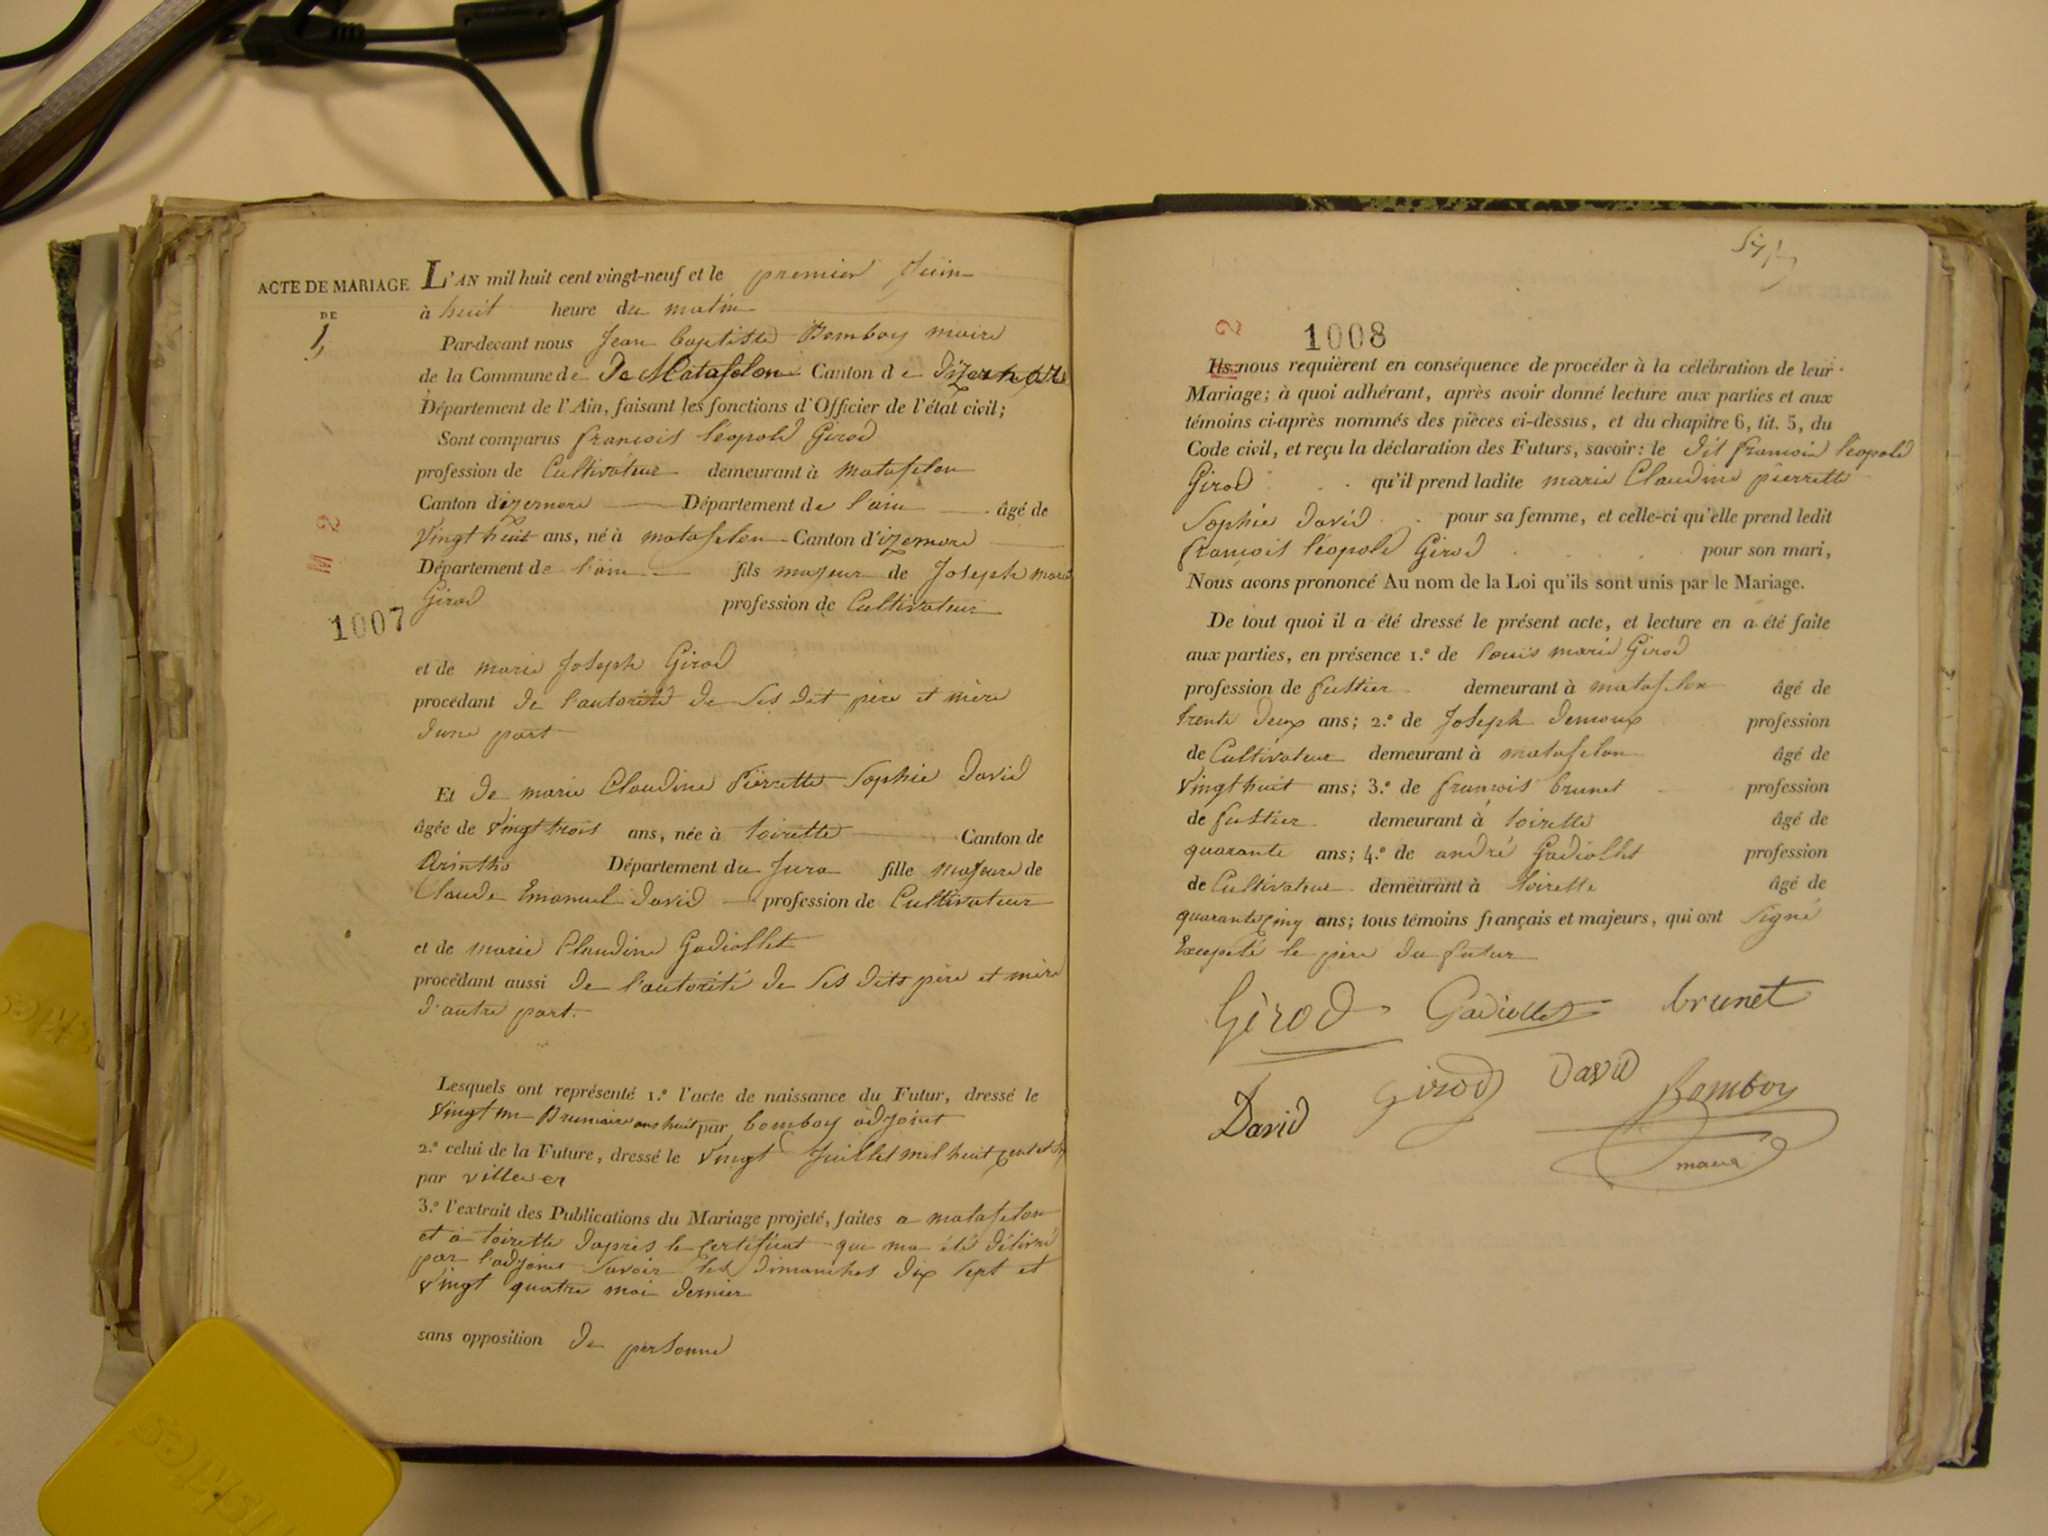 ACTE DE MARIAGE
DE
1,
L'AN mil huit cent vingt-neuf et le premier Juin
à huit heure du matin
Par-devant nous Jean baptiste Bomboy maire
de la Commune de De Matafelon Canton d e Dizernore
Département de l'Ain, faisant les fonctions d'Officier de l'état civil;
Sont comparus françois léopold Girod
profession de Cultivateur demeurant à matafelon
Canton d'izernore Département de l'ain âgé de
Vingt huit ans, né à matafelon Canton d'izernore
Département de l'ain fils majeur de Joseph marie
Girod profession de Cultivateur
M 2
1007
et de marie Joseph Girod
procédant de l'autorité de ses dit père et mère
d'une part
Et de marie Claudine Pierrette Sophie david
âgée de Vingt trois ans, née à toirette Canton de
Arintho Département du Jura fille majeure de
Claude Emanuel david profession de Cultivateur
et de marie Claudine Gadiollet
procédant aussi de l'autorité de ses dits père et mère
d'autre part.
Lesquels ont représenté 1.º l'acte de naissance du Futur, dressé le
Vingt un Brumaire ans huit par bomboy adjoint
2.º celui de la Future, dressé le Vingt Juillet mil huit cent et
par
3.º l'extrait des Publications du Mariage projeté, faites a matafelon
et à toirette d'après le certificat que ma été délivré
par l'adjoint savoir les dimanches dix sept et
Vingt quatre mai dernier
sans opposition de personne
2
1008
Ils nous requièrent en conséquence de procéder à la célébration de leur
Mariage; à quoi adhérant, après avoir donné lecture aux parties et aux
témoins ci-après nommés des pièces ci-dessus, et du chapitre 6, tit. 5, du
Code civil, et reçu la déclaration des Futurs, savoir: le dit françois léopold
Girod qu'il prend ladite marie Claudine pierrette
Sophie david pour sa femme, et celle-ci qu'elle prend ledit
françois léopold Girod pour son mari,
Nous avons prononcé Au nom de la Loi qu'ils sont unis par le Mariage.
De tout quoi il a été dressé le présent acte, et lecture en a été faite
aux parties, en présence 1.º de louis marie Girod
profession de fustier demeurant à matafelon âgé de
trente deux ans; 2.º de Joseph demoux profession
de Cultivateur demeurant à matafelon âgé de
Vingt huit ans; 3.º de françois brunet profession
de fustier demeurant à toirette âgé de
quarante ans; 4.º de andré Gadiollet profession
de Cultivateur demeurant à toirette âgé de
quarante cinq ans; tous témoins français et majeurs, qui ont signé
Excepté le père du futur
Girod Gadiollet brunet
David Girod David Bomboy
maire